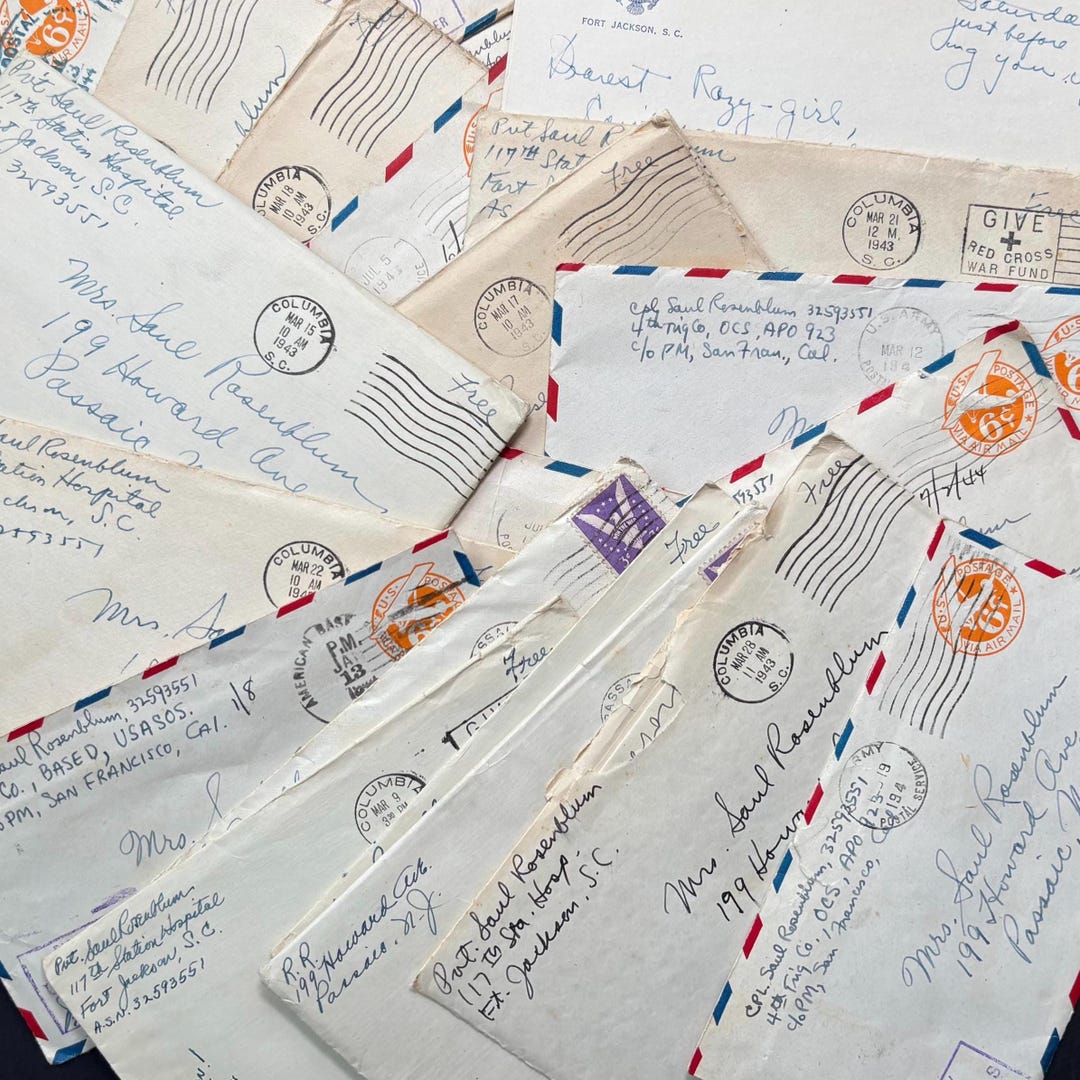 POSTAL
6¢
AIR MAIL
Free
FORT JACKSON, S. C.
Saturday
just before
ing you
Dearest Rozy-girl,
Pvt. Saul Rosenblum
117th Station Hospital
Jackson, S.C.
32593551
COLUMBIA
MAR 18
10 AM
1943
S.C.
Pvt Saul R
117TH Stat
Fort
AS
Free
COLUMBIA
MAR 21
12 M.
1943
S.C.
Free
GIVE
RED CROSS
WAR FUND
JUL 5
COLUMBIA
MAR 17
10 AM
1943
S.C.
Mrs. Saul Rosenblum
199 Howard Ave
Passaic
COLUMBIA
MAR 15
10 AM
1943
S.C.
Free
Cpl Saul Rosenblum 32593551
4th Trng Co, OCS, APO 923
c/o PM, San Fran., Cal.
U.S. ARMY
MAR 12
194
POSTAL
U.S. POSTAGE
6¢
VIA AIR MAIL
7/2/44
Saul Rosenblum
Station Hospital
S.C
COLUMBIA
MAR 22
10 AM
Mrs. Sa
3¢
Free
593551
Free
COLUMBIA
MAR 28
11 AM
1943
S.C.
U.S. POSTAGE
AMERICAN BASE
P.M.
JAN
13
Saul Rosenblum, 32593551
Co. 1 BASED, USASOS.
PM, SAN FRANCISCO, CAL.
1/8
Mrs. S
PASSAIC
Free
COLUMBIA
MAR 9
3 30 PM
Pvt. Saul Rosenblum
117th Station Hospital
Fort Jackson, S.C.
A.S.N. 32593551
R.R.
199 Howard Ave.
Passaic, N.J.
Pvt. Saul Rosenblum
117th Sta. Hosp.
Ft. Jackson, S.C.
Mrs. Saul Rosenblum
199 Howar
U.S. POSTAGE
6¢
VIA AIR MAIL
ARMY
12-19
194
POSTAL SERVICE
CPL. Saul Rosenblum, 32593551
4th Trng Co. 1 OCS, APO 923
c/o PM, San Francisco, Cal
Mrs. Saul Rosenblum
199 Howard Ave
Passaic, N